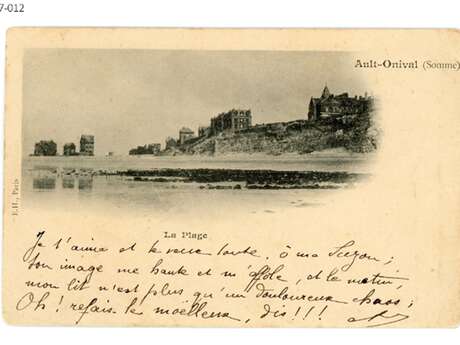 7-012
Ault-Onival (Somme)
E.H., Paris
La Plage
Je t'aime et te veux toute, ô ma Suzon;
Ton image me hante et m'affole, et le matin,
mon lit n'est plus qu'un douloureux chaos;
Oh! refais-le moelleux, dis!!!